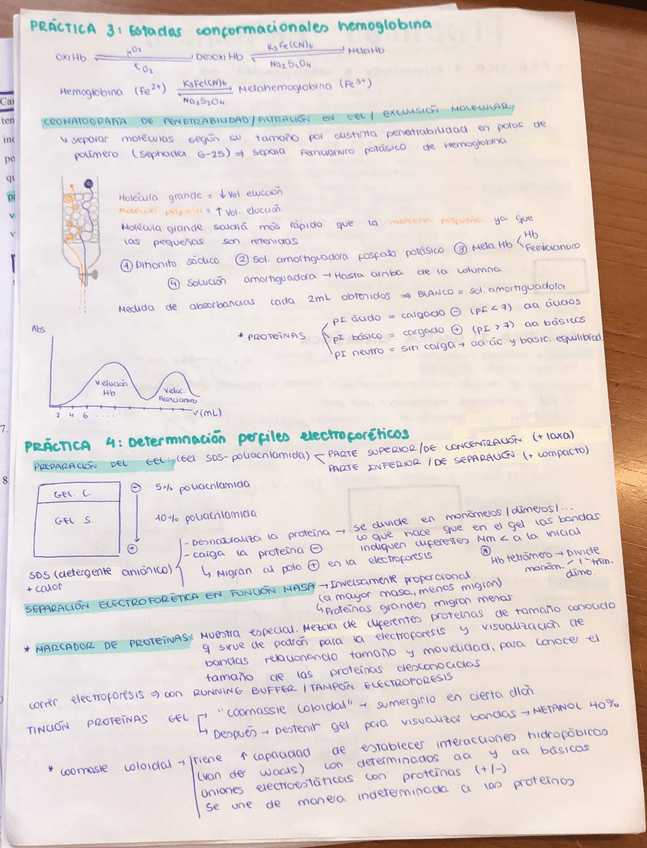 PRÁCTICA 3: Estados conformacionales hemoglobina
OxiHb ⇌ DesoxiHb ⇌ MetaHb
O2 K3Fe(CN)6
O2 Na2S2O4
Hemoglobina (Fe2+) ⇌ Metahemoglobina (Fe3+)
K3Fe(CN)6
Na2S2O4
CROMATOGRAFÍA DE PENETRABILIDAD/FILTRACIÓN EN GEL/ EXCLUSIÓN MOLECULAR
↳ separar moléculas según su tamaño por distinta penetrabilidad en poros de
polímero (Sephadex G-25) ⇒ separa Ferricianuro potásico de Hemoglobina
Molécula grande = ↓ Vol elución
Molécula pequeña = ↑ Vol. elución
Molécula grande saldrá más rápido que la molécula pequeña ya que
las pequeñas son retenidas
① Ditionito sódico ② Sol. amortiguadora fosfato potásico ③ Meta Hb < Hb
Ferricianuro
④ Solución amortiguadora → Hasta arriba de la columna
Medida de absorbancias cada 2mL obtenidos ⇒ BLANCO = sol. amortiguadora
* PROTEÍNAS
pI ácido = cargado ⊖ (pI < 7) aa ácidos
pI básico = cargado ⊕ (pI > 7) aa básicos
pI neutro = sin carga → aa ác y basic. equilibrad.
Abs
Velución
Hb
Veluc.
Ferricianuro
2 4 6 ....
V(mL)
PRÁCTICA 4: Determinación perfiles electroforéticos
PREPARACIÓN DEL GEL: (Gel SDS-poliacrilamida) < PARTE SUPERIOR/DE CONCENTRACIÓN (+ laxa)
PARTE INFERIOR / DE SEPARACIÓN (+ compacto)
GEL C. ⊖ 5% poliacrilamida
GEL S. 10% poliacrilamida
⊕
SDS (detergente aniónico)
+ calor
- Desnaturaliza la proteína → se divide en monómeros/dímeros/...
lo que hace que en el gel las bandas
indiquen diferentes Mm < a la inicial
- carga la proteína ⊖
↳ Migran al polo ⊕ en la electroforesis
Hb tetrámero → Divide
monóm. / - trím.
díme.
SEPARACIÓN ELECTROFORÉTICA EN FUNCIÓN MASA → Inversamente proporcional
(a mayor masa, menos migran)
↳ Proteínas grandes migran menos
* MARCADOR DE PROTEÍNAS: Muestra especial. Mezcla de diferentes proteínas de tamaño conocido
q sirve de patrón para la electroforesis y visualización de
bandas relacionando tamaño y movilidad, para conocer el
tamaño de las proteínas desconocidas
correr electroforesis ⇒ con RUNNING BUFFER / TAMPÓN ELECTROFORESIS
TINCIÓN PROTEÍNAS GEL
"Coomassie coloidal" → sumergirlo en cierta dlón
Después → Desteñir gel para visualizar bandas → METANOL 40%
* coomasie coloidal → Tiene ↑ capacidad de establecer interacciones hidrofóbicas
(van der waals) con determinados aa y aa básicos
uniones electrostáticas con proteínas (+/-)
Se une de manera indeterminada a las proteínas